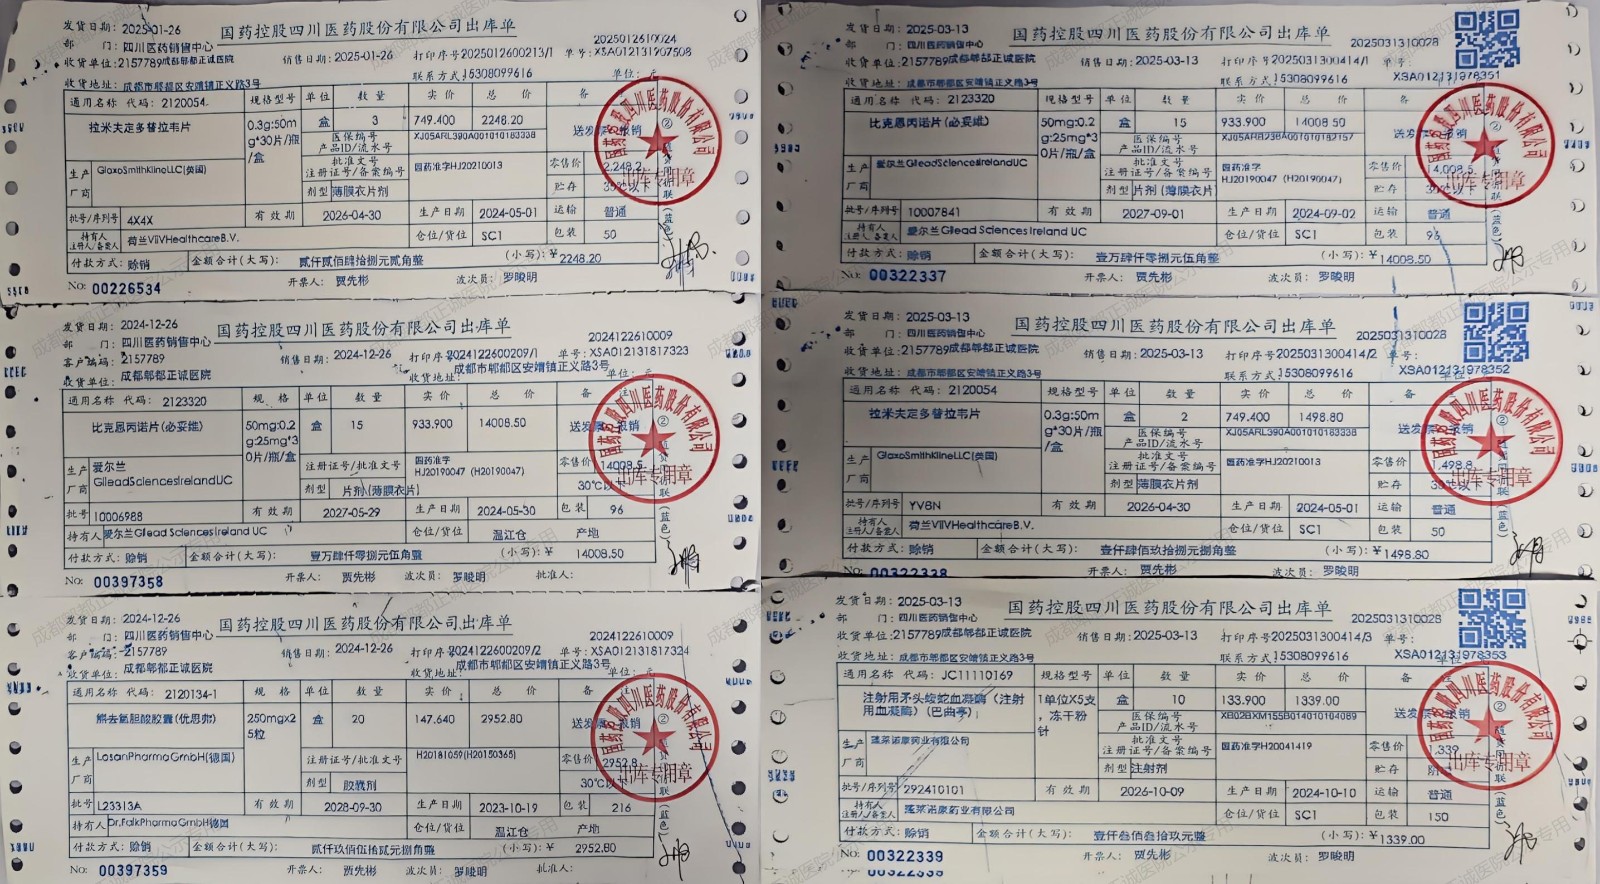 发货日期: 2025-01-26
国药控股四川医药股份有限公司出库单
2025012610024
部 门: 四川医药销售中心
收货单位:2157789成都郫都正诚医院
销售日期:2025-01-26
打印序号2025012600213/1
单号:XSA012131907508
收货地址: 成都市郫都区安靖镇正义路3号
联系方式:15308099616
单位: 元
通用名称 代码: 2120054
规格型号 单位 数量 实价 总价 备
拉米夫定多替拉韦片
0.3g:50m
g*30片/瓶
/盒
盒 3 749.400 2248.20
医保编号
产品ID/流水号
XJ05ARL390A001010183338
批准文号
注册证号/备案编号
国药准字HJ20210013
零售价 2,248.2
生产
厂商
GlaxoSmithKlineLLC(美国)
剂型 薄膜衣片剂
贮存 30℃以下
批号/序列号 4X4X
有效期 2026-04-30
生产日期 2024-05-01
运输 普通
持有人
注册人/备案人
荷兰ViiVHealthcareB.V.
仓位/货位 SC1
包装 50
付款方式: 赊销
金额合计(大写): 贰仟贰佰肆拾捌元贰角整
(小写):¥ 2248.20
No: 00226534
开票人: 贾先彬
波次员: 罗畯明
出库专用章
发货日期: 2024-12-26
国药控股四川医药股份有限公司出库单
2024122610009
部 门: 四川医药销售中心
客户编码: 2157789
销售日期:2024-12-26
打印序号2024122600209/1
单号:XSA012131817323
收货单位: 成都郫都正诚医院
收货地址: 成都市郫都区安靖镇正义路3号
单位: 元
通用名称 代码: 2123320
规格 单位 数量 实价 总价 备
比克恩丙诺片(必妥维)
50mg:0.2
g:25mg*3
0片/瓶/盒
盒 15 933.900 14008.50
生产
厂商
爱尔兰
GileadSciencesIrelandUC
注册证号/批准文号
国药准字
HJ20190047 (H20190047)
零售价 14008.5
剂型 片剂(薄膜衣片)
30℃以下
批号 10006988
有效期 2027-05-29
生产日期 2024-05-30
包装 96
持有人 爱尔兰Gilead Sciences Ireland UC
仓位/货位 温江仓 产地
付款方式: 赊销
金额合计(大写): 壹万肆仟零捌元伍角整
(小写):¥ 14008.50
No: 00397358
开票人: 贾先彬
波次员: 罗畯明
批准人:
出库专用章
发货日期: 2024-12-26
国药控股四川医药股份有限公司出库单
2024122610009
部 门: 四川医药销售中心
客户编码: 2157789
销售日期:2024-12-26
打印序号2024122600209/2
单号:XSA012131817324
收货单位: 成都郫都正诚医院
收货地址: 成都市郫都区安靖镇正义路3号
单位: 元
通用名称 代码: 2120134-1
规格 单位 数量 实价 总价 备
熊去氧胆酸胶囊(优思弗)
250mgx2
5粒
盒 20 147.640 2952.80
生产
厂商
LosanPharmaGmbH(德国)
注册证号/批准文号
H20181059(H20150365)
零售价 2952.8
剂型 胶囊剂
30℃以下
批号 L23313A
有效期 2028-09-30
生产日期 2023-10-19
包装 216
持有人 Dr.FalkPharmaGmbH德国
仓位/货位 温江仓 产地
付款方式: 赊销
金额合计(大写): 贰仟玖佰伍拾贰元捌角整
(小写):¥ 2952.80
No: 00397359
开票人: 贾先彬
波次员: 罗畯明
批准人:
出库专用章
发货日期: 2025-03-13
国药控股四川医药股份有限公司出库单
2025031310028
部 门: 四川医药销售中心
收货单位:2157789成都郫都正诚医院
销售日期:2025-03-13
打印序号2025031300414/1
单号:
XSA012131978351
收货地址: 成都市郫都区安靖镇正义路3号
联系方式:15308099616
通用名称 代码: 2123320
规格型号 单位 数量 实价 总价 备
比克恩丙诺片(必妥维)
50mg:0.2
g:25mg*3
0片/瓶/盒
盒 15 933.900 14008.50
医保编号
产品ID/流水号
XJ05ARB238A001010182157
批准文号
注册证号/备案编号
国药准字
HJ20190047 (H20190047)
零售价 14,008.5
生产
厂商
爱尔兰GileadSciencesIrelandUC
剂型 片剂 (薄膜衣片)
贮存 30℃以下
批号/序列号 10007841
有效期 2027-09-01
生产日期 2024-09-02
运输 普通
持有人
注册人/备案人
爱尔兰Gilead Sciences Ireland UC
仓位/货位 SC1
包装 96
付款方式: 赊销
金额合计(大写): 壹万肆仟零捌元伍角整
(小写):¥ 14008.50
No: 00322337
开票人: 贾先彬
波次员: 罗畯明
出库专用章
发货日期: 2025-03-13
国药控股四川医药股份有限公司出库单
2025031310028
部 门: 四川医药销售中心
收货单位:2157789成都郫都正诚医院
销售日期:2025-03-13
打印序号2025031300414/2
单号:
XSA012131978352
收货地址: 成都市郫都区安靖镇正义路3号
联系方式:15308099616
通用名称 代码: 2120054
规格型号 单位 数量 实价 总价 备
拉米夫定多替拉韦片
0.3g:50m
g*30片/瓶
/盒
盒 2 749.400 1498.80
医保编号
产品ID/流水号
XJ05ARL390A001010183338
批准文号
注册证号/备案编号
国药准字HJ20210013
零售价 1,498.8
生产
厂商
GlaxoSmithKlineLLC(美国)
剂型 薄膜衣片剂
贮存 30℃以下
批号/序列号 YV8N
有效期 2026-04-30
生产日期 2024-05-01
运输 普通
持有人
注册人/备案人
荷兰ViiVHealthcareB.V.
仓位/货位 SC1
包装 50
付款方式: 赊销
金额合计(大写): 壹仟肆佰玖拾捌元捌角整
(小写):¥ 1498.80
No: 00322338
开票人: 贾先彬
波次员: 罗畯明
出库专用章
发货日期: 2025-03-13
国药控股四川医药股份有限公司出库单
2025031310028
部 门: 四川医药销售中心
收货单位:2157789成都郫都正诚医院
销售日期:2025-03-13
打印序号2025031300414/3
单号:
XSA012131978353
收货地址: 成都市郫都区安靖镇正义路3号
联系方式:15308099616
通用名称 代码: JC11110169
规格型号 单位 数量 实价 总价 备
注射用矛头蝮蛇血凝酶 (注射
用血凝酶) (巴曲亭)
1单位X5支
,冻干粉
针
盒 10 133.900 1339.00
医保编号
产品ID/流水号
XB02BXM155B014010104089
批准文号
注册证号/备案编号
国药准字H20041419
零售价 1,339
生产
厂商
蓬莱诺康药业有限公司
剂型 注射剂
贮存
批号/序列号 292410101
有效期 2026-10-09
生产日期 2024-10-10
运输 普通
持有人
注册人/备案人
蓬莱诺康药业有限公司
仓位/货位 SC1
包装 150
付款方式: 赊销
金额合计(大写): 壹仟叁佰叁拾玖元整
(小写):¥ 1339.00
No: 00322339
开票人: 贾先彬
波次员: 罗畯明
出库专用章